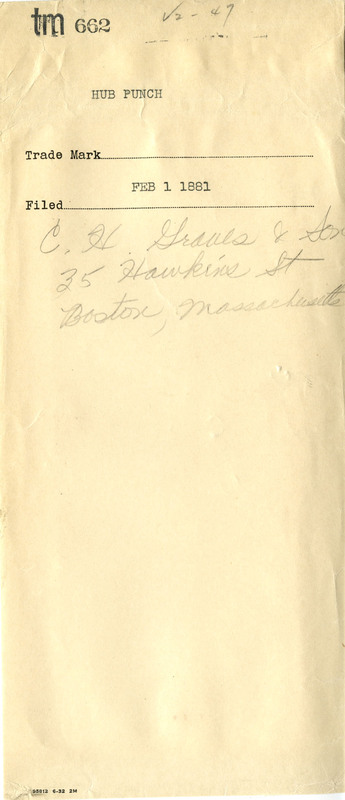 tm 662
V2-47
HUB PUNCH
Trade Mark
FEB 1 1881
Filed
C. H. Graves & Son
35 Hawkins St
Boston, Massachusetts
6-32 2M